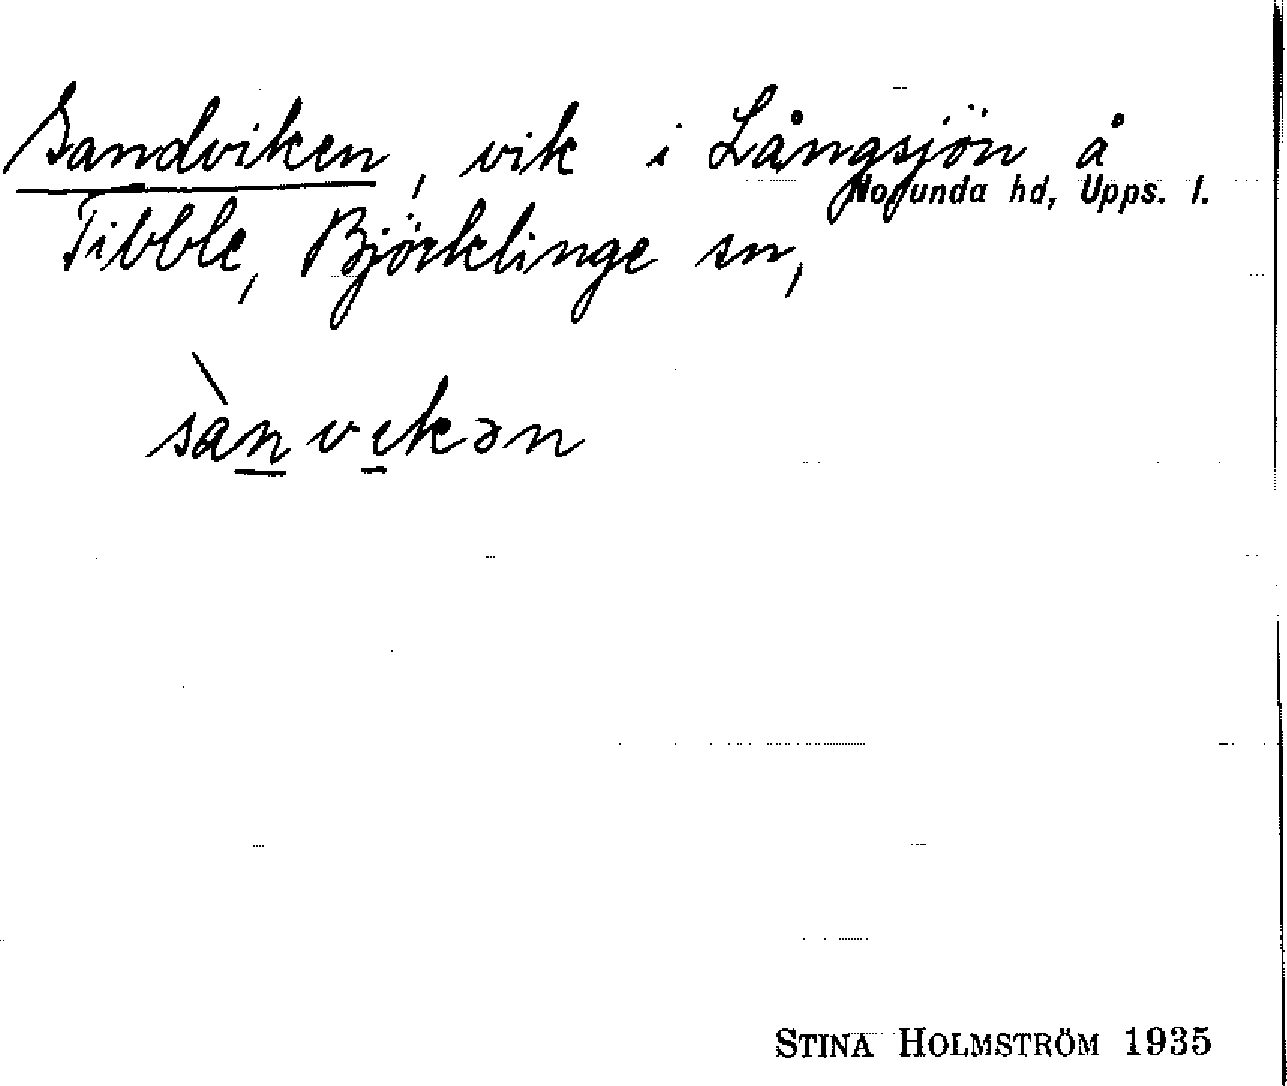 Sandviken, vik i Långsjön å
Norunda hd, Upps. l.
Tibble, Björklinge sn,
sànvikən
STINA HOLMSTRÖM 1935